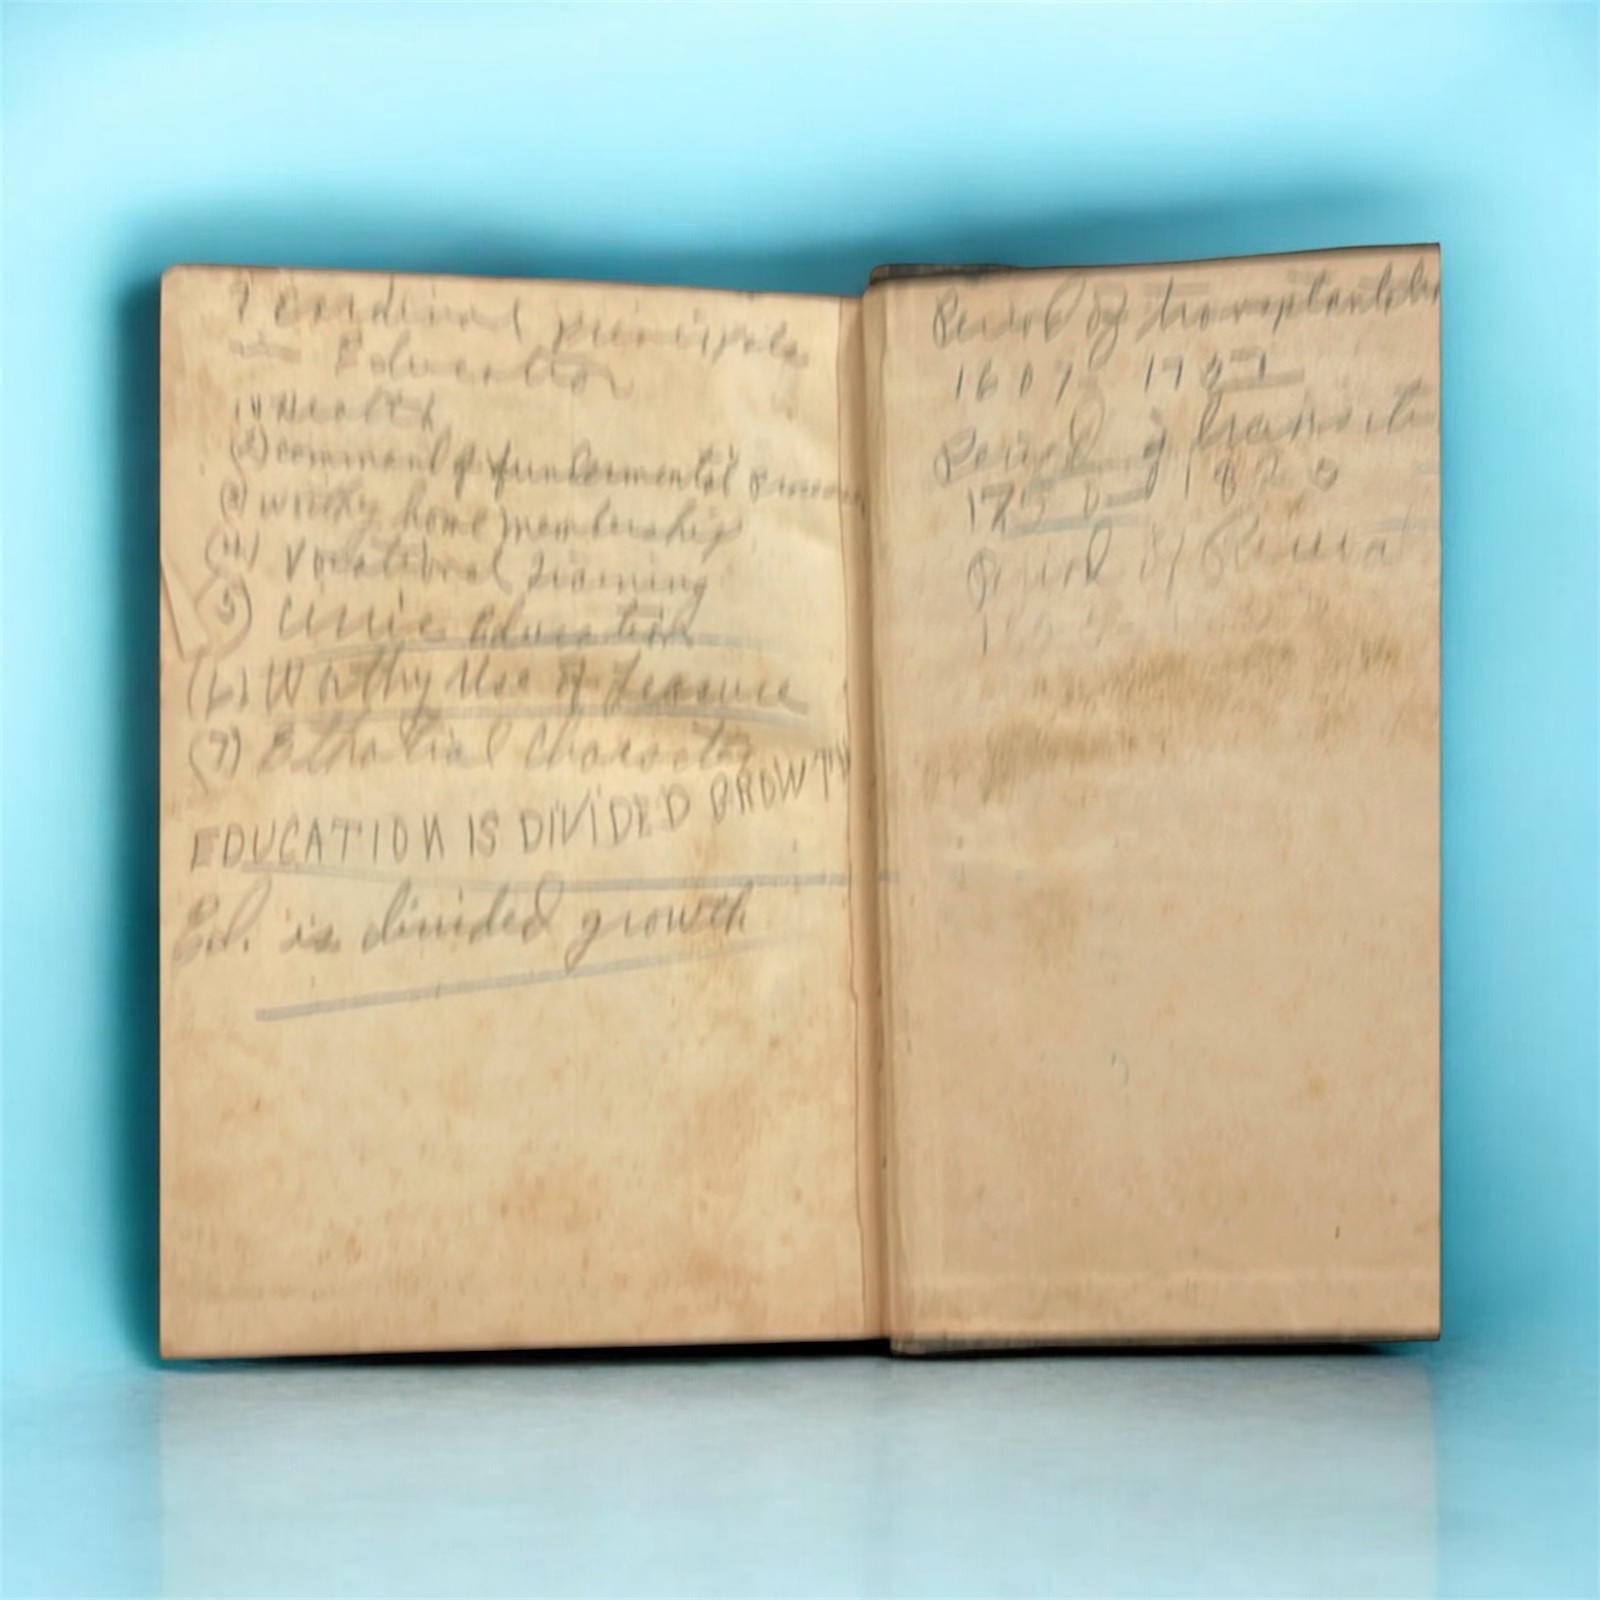 7 Cardinal Principles
in Education
(1) Health
(2) command of fundermental
(3) worthy home membership
(4) Vocational Training
(5) Civic Education
(6) Worthy Use of Leasure
(7) Character
EDUCATION IS DIVIDED GROWTH
Ed. is divided growth
Period of
1607
Period of
1750 - 1820
Period of